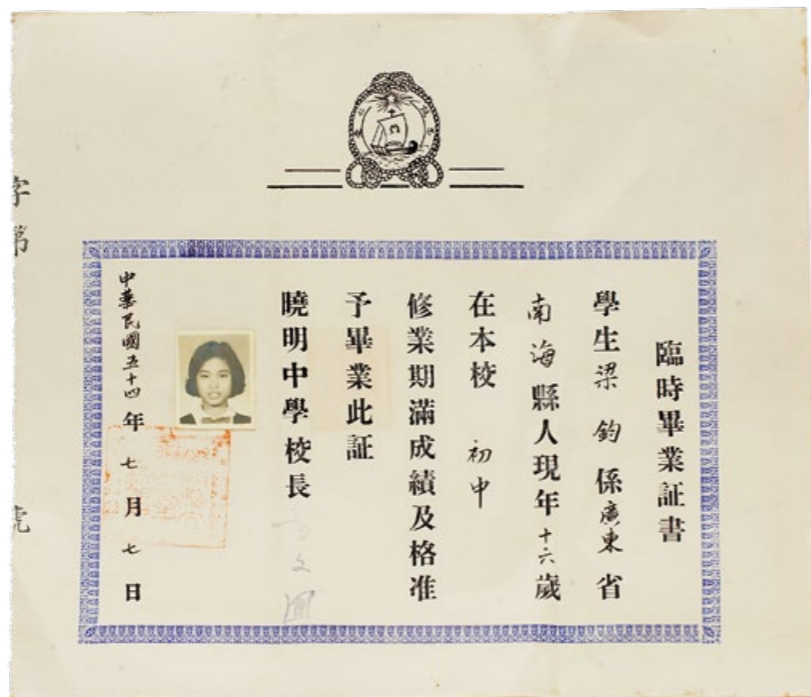 臨時畢業証書
學生梁鈞係廣東省
南海縣人現年十六歲
在本校 初中
修業期滿成績及格准
予畢業此証
曉明中學校長
中華民國五十四年七月七日
字第 號